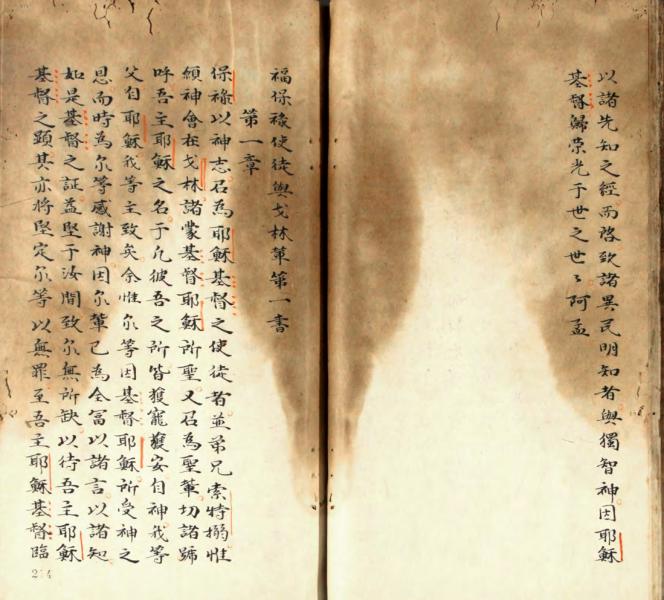 以諸先知之經而啓致諸異民明知者與獨智神因耶穌
基督歸榮光于世之世々阿孟
福保祿使徒與戈林輩第一書
第一章
保祿以神志召為耶穌基督之使徒者並弟兄索特搦惟
傾神會在戈林諸蒙基督耶穌所聖又召為聖輩切諸歸
呼吾主耶穌之名于凢彼吾之所皆獲寵獲安自神我等
父自耶穌我等主致矣余惟尔等因基督耶穌所受神之
恩而時為尔等感謝神因尔輩已為全富以諸言以諸知
如是基督之証益堅于汝間致尔無所缺以待吾主耶穌
基督之顕其亦将堅定尔等以無罪至吾主耶穌基督臨